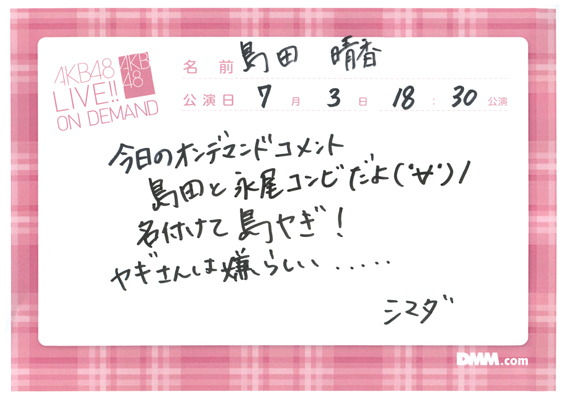 AKB48
LIVE!!
ON DEMAND
AKB
48
名前 島田 晴香
公演日 7月 3日 18:30 公演
今日のオンデマンドコメント
島田と永尾コンビだよ(°∀°)ノ
名付けて島やぎ!
ヤギさんは嫌らしい.....
シマダ
DMM.com